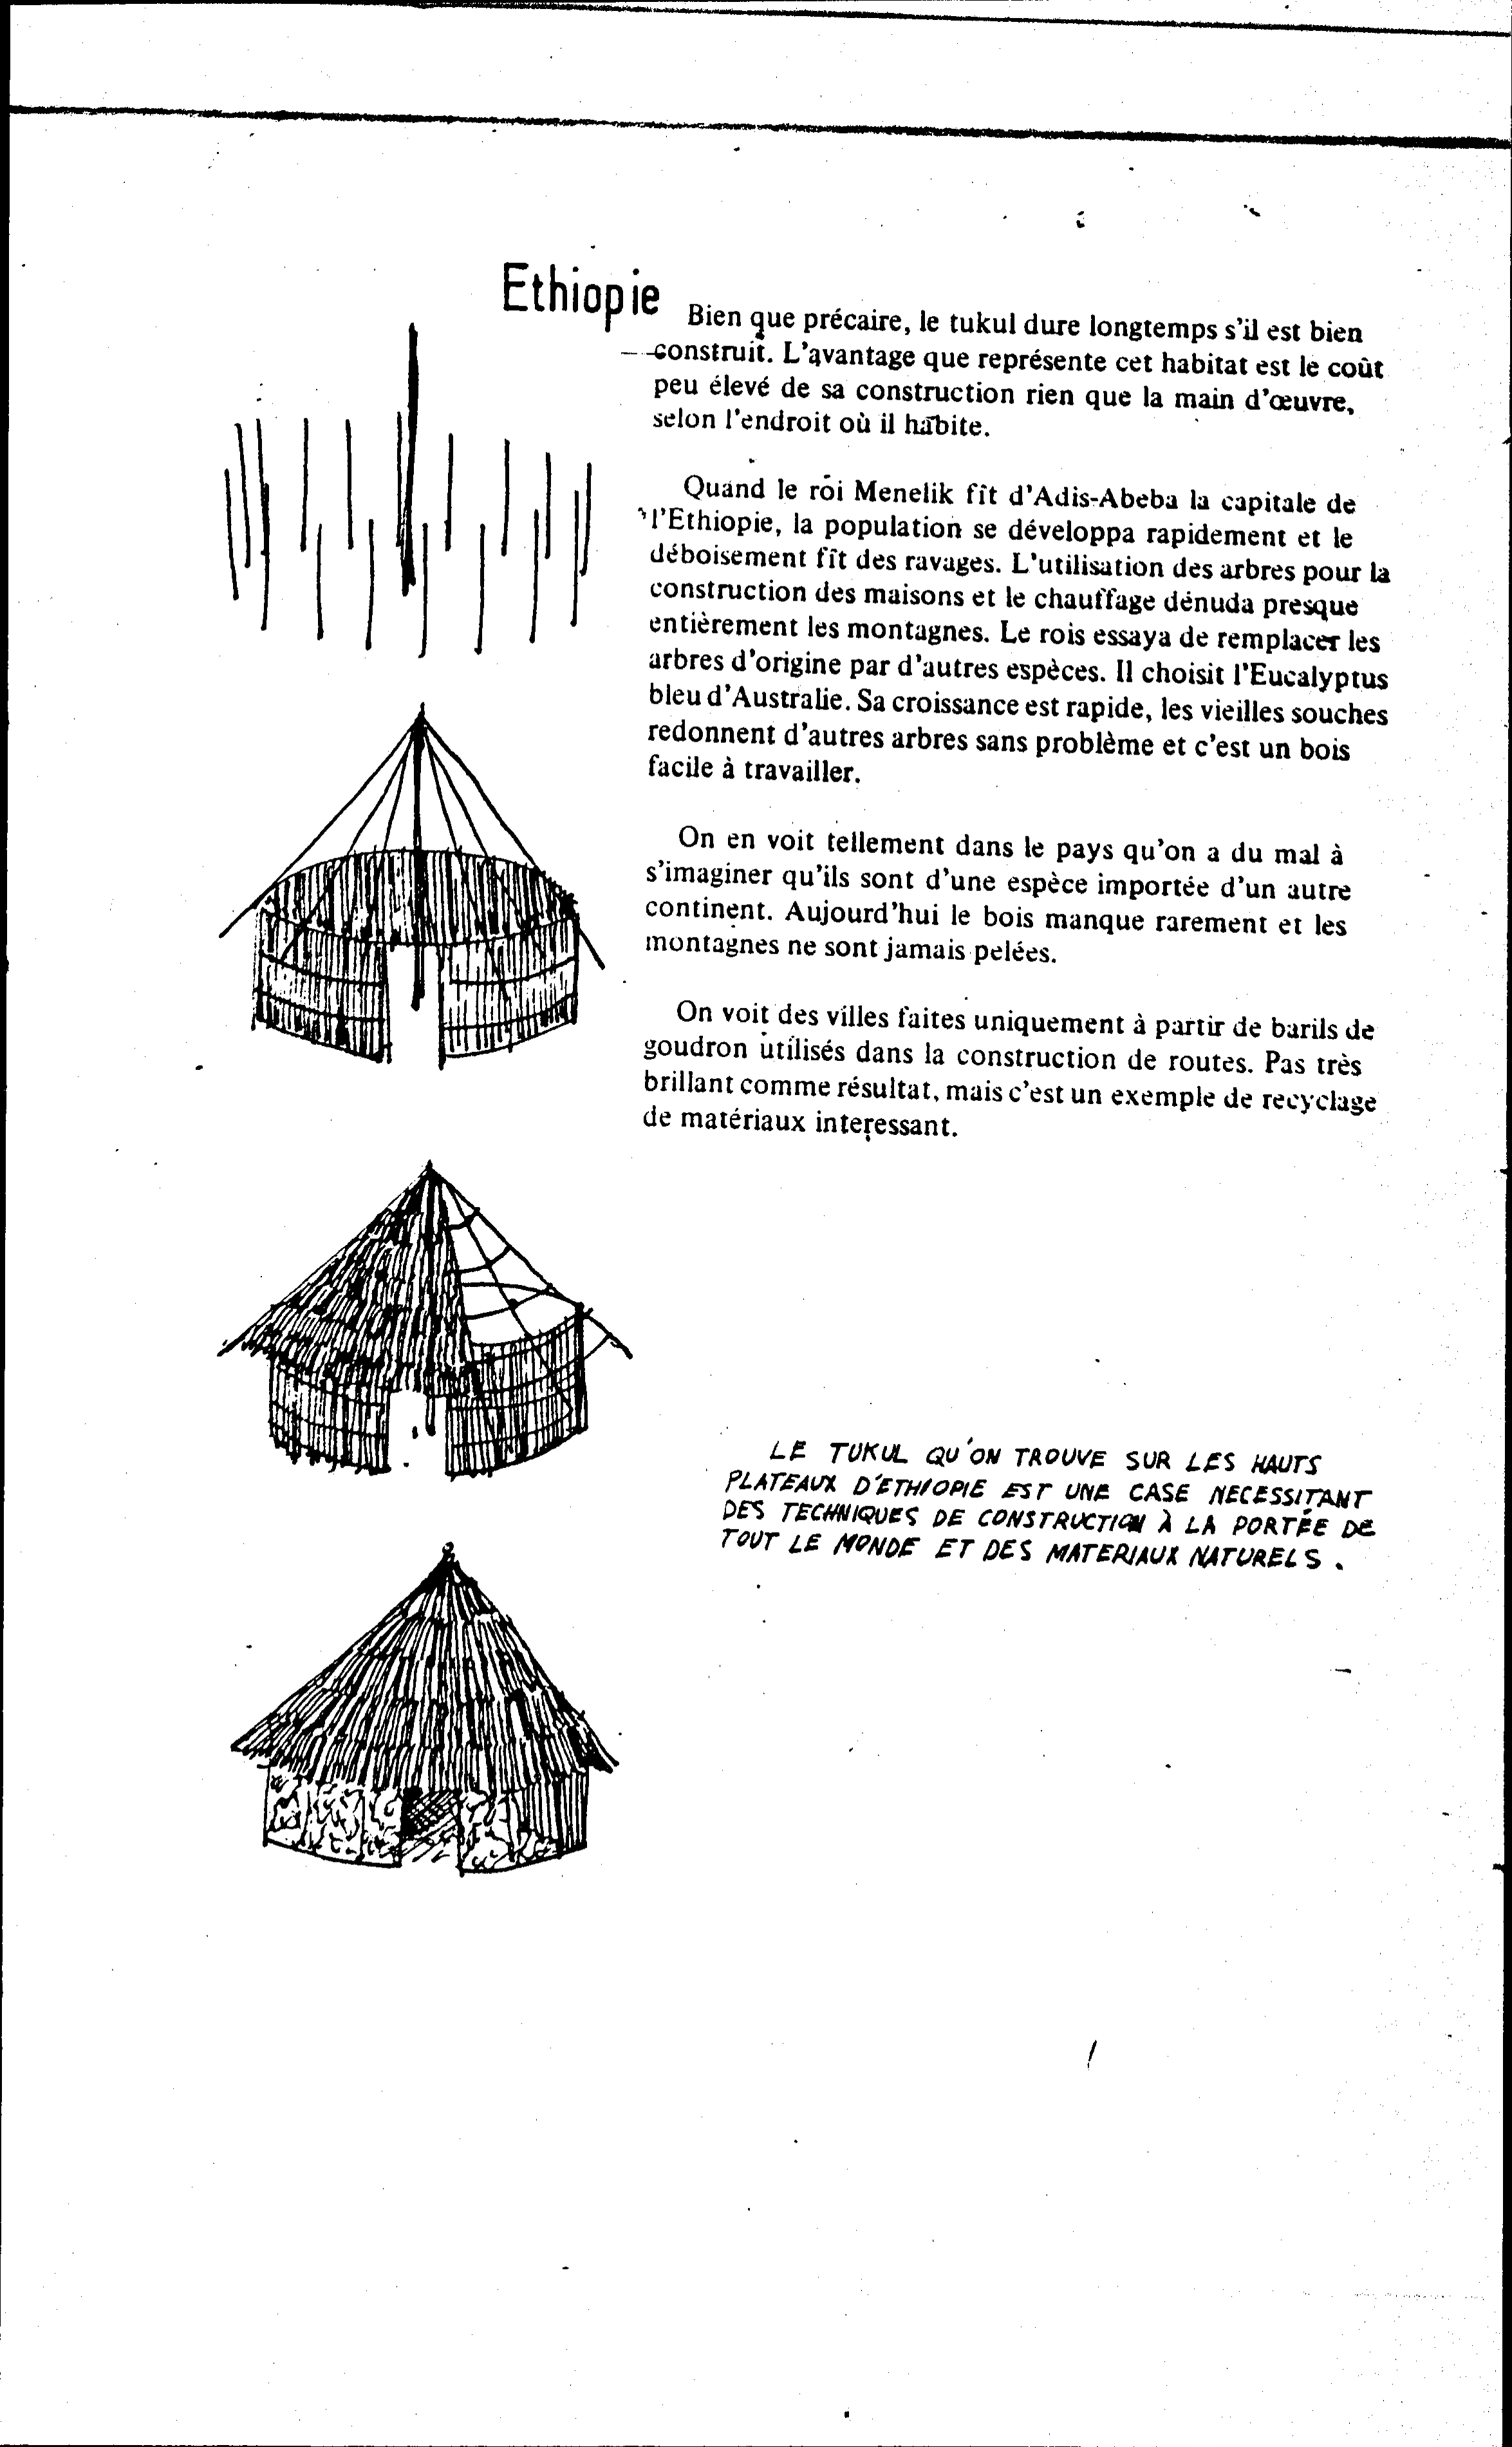 Ethiopie
Bien que précaire, le tukul dure longtemps s'il est bien
construit. L'avantage que représente cet habitat est le coût
peu élevé de sa construction rien que la main d'œuvre,
selon l'endroit où il habite.
Quand le roi Menelik fît d'Adis-Abeba la capitale de
l'Ethiopie, la population se développa rapidement et le
déboisement fît des ravages. L'utilisation des arbres pour la
construction des maisons et le chauffage dénuda presque
entièrement les montagnes. Le rois essaya de remplacer les
arbres d'origine par d'autres espèces. Il choisit l'Eucalyptus
bleu d'Australie. Sa croissance est rapide, les vieilles souches
redonnent d'autres arbres sans problème et c'est un bois
facile à travailler.
On en voit tellement dans le pays qu'on a du mal à
s'imaginer qu'ils sont d'une espèce importée d'un autre
continent. Aujourd'hui le bois manque rarement et les
montagnes ne sont jamais pelées.
On voit des villes faites uniquement à partir de barils de
goudron utilisés dans la construction de routes. Pas très
brillant comme résultat, mais c'est un exemple de recyclage
de matériaux interessant.
LE TUKUL QU'ON TROUVE SUR LES HAUTS
PLATEAUX D'ETHIOPIE EST UNE CASE NECESSITANT
DES TECHNIQUES DE CONSTRUCTION À LA PORTÉE DE
TOUT LE MONDE ET DES MATERIAUX NATURELS.